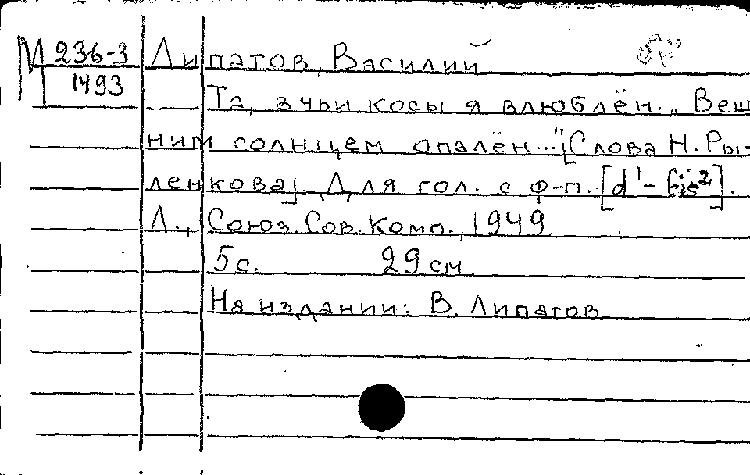 М 236-3 Липатов, Василий
1493
Та, в чьи косы я влюблён... "Веш-
ним солнцем опалён..." [Слова Н. Ры-
ленкова]. Для гол. с ф-п. [d¹ - fis²].
Л., Союз. Сов. Комп., 1949
5 с. 29 см
На издании: В. Липатов